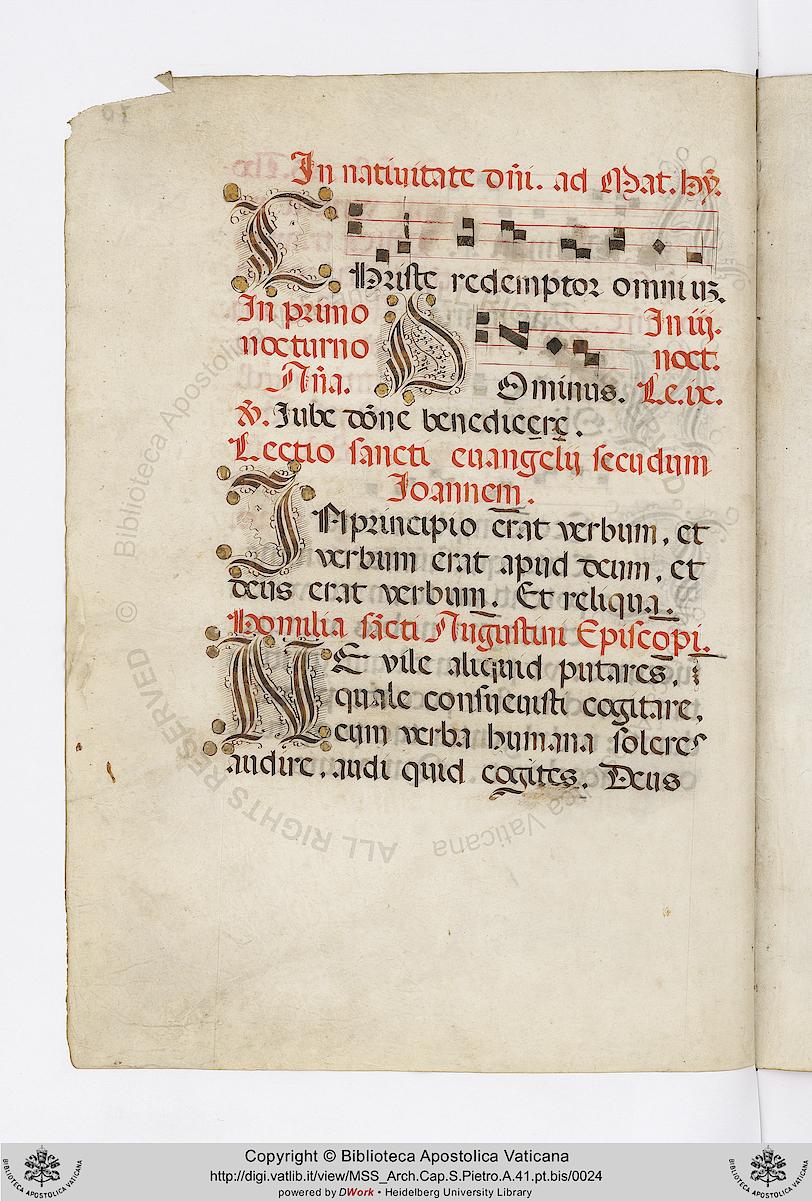 In natiuitate dn̄i. ad Mat. hy̅.
Christe redemptor omniuȝ.
In primo
nocturno
An̄a.
Dominus.
In iij.
noct.
Le. ix.
℣. Iube dōne benedicere.
Lectio sancti euangelij secūdum
Ioannem.
IN principio erat verbum, et
verbum erat apud deum, et
deus erat verbum. Et reliqua.
Homilia sācti Augustini Episcopi.
NE vile aliquid putares,
quale consueuisti cogitare,
cum verba humana soleres
audire, audi quid cogites. Deus
© Biblioteca Apostolica Vaticana
ALL RIGHTS RESERVED
Copyright © Biblioteca Apostolica Vaticana
http://digi.vatlib.it/view/MSS_Arch.Cap.S.Pietro.A.41.pt.bis/0024
powered by DWork • Heidelberg University Library
BIBLIOTECA APOSTOLICA VATICANA
BIBLIOTECA APOSTOLICA VATICANA